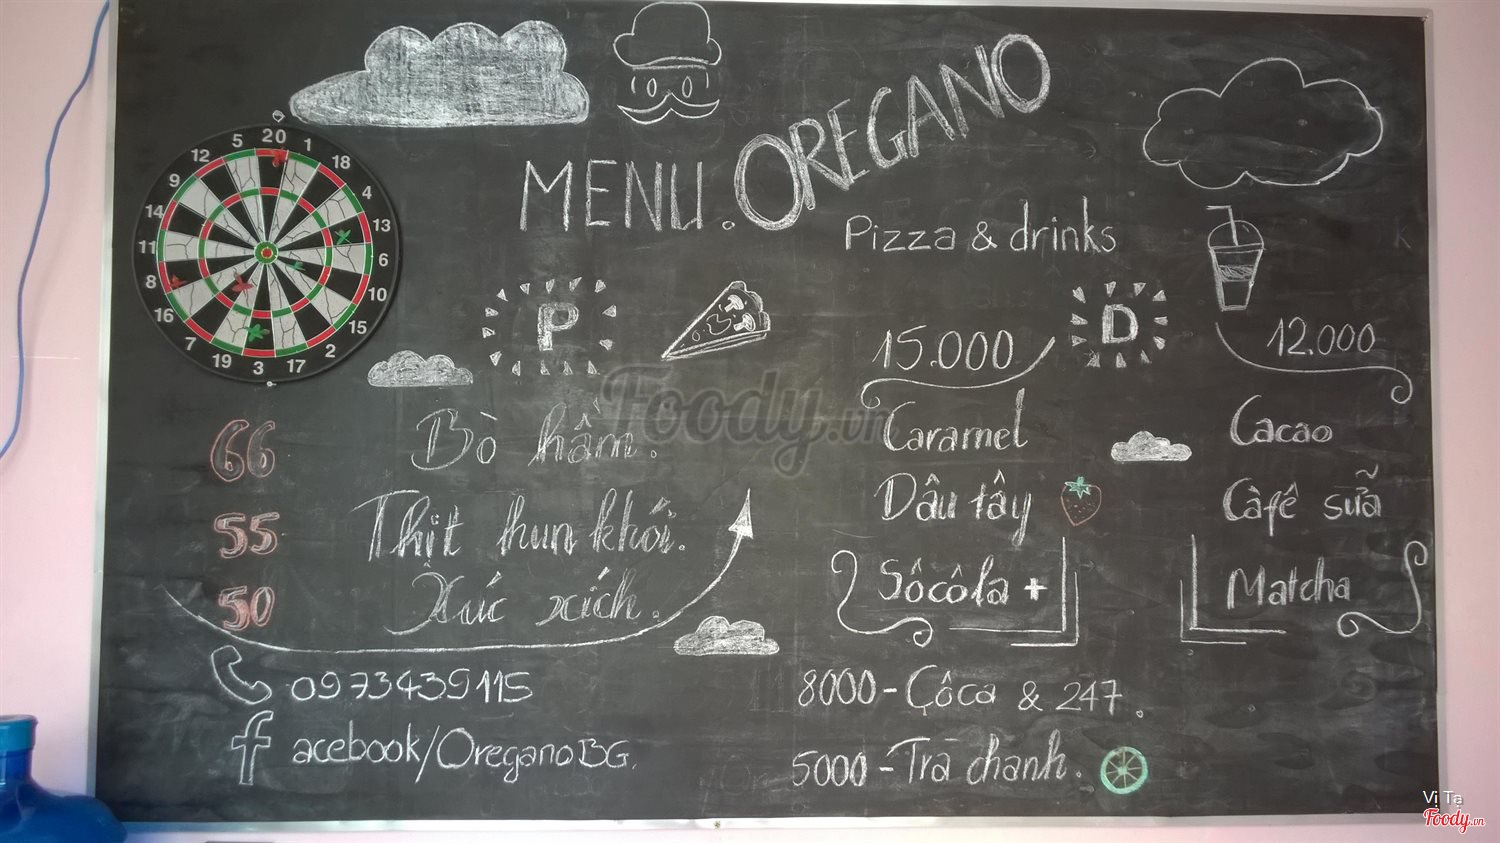 MENU. OREGANO
Pizza & drinks
P
66 Bò hầm.
55 Thịt hun khói.
50 Xúc xích.
0973439115
facebook/OreganoBG.
D
15.000
Caramel
Dâu tây
Sôcôla +
12.000
Cacao
Càfê sữa
Matcha
8000 - Côca & 247.
5000 - Trà chanh.
20 1 18 4 13 6 10 15 2 17 3 19 7 16 8 11 14 9 12 5
Foody.vn
Vị Tạ
Foody.vn